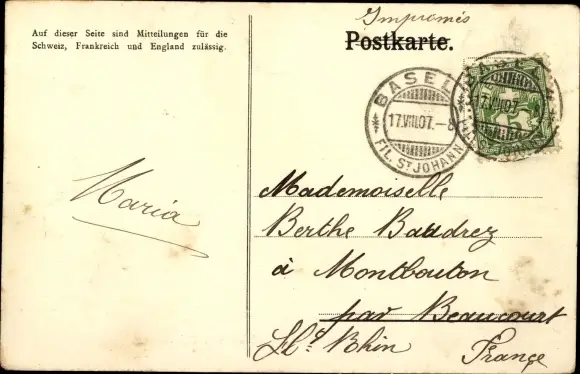 Auf dieser Seite sind Mitteilungen für die
Schweiz, Frankreich und England zulässig.
Imprimés
Postkarte.
BASEL
17.VIII.07.-8
FIL. ST JOHANN
17.VIII.07
Maria
Mademoiselle
Berthe Baudrez
à Montbouton
par Beaucourt
Ht Rhin
France